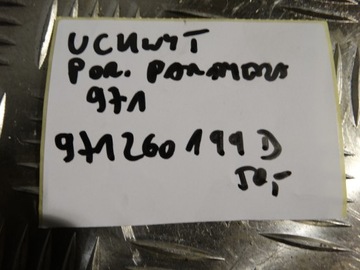 UCHWYT
POR. PANAMERA
971
971260199D
50,-